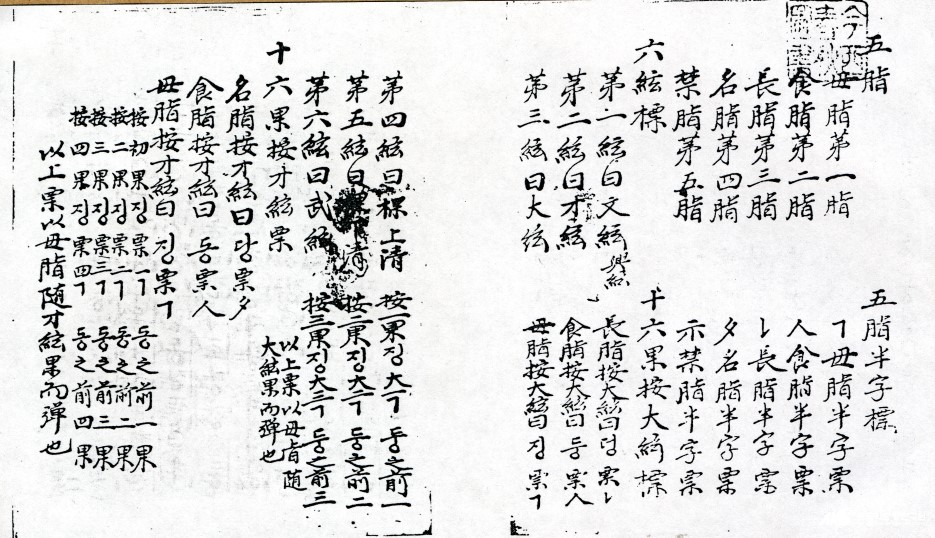 五脂
母脂第一脂
食脂第二脂
長脂第三脂
名脂第四脂
禁脂第五脂
六絃標
第一絃曰文絃
第二絃曰才絃
第三絃曰大絃
五脂半字標
ㄱ母脂半字票
人食脂半字票
ㄴ長脂半字票
夕名脂半字票
示禁脂半字票
十六果按大絃標
長脂按大絃曰덩票ㄴ
食脂按大絃曰등票人
母脂按大絃曰징票ㄱ
第四絃曰棵上清
第五絃曰清
第六絃曰武絃
按一果징大一ㄱ 등之前一
按二果징大二ㄱ 등之前二
按三果징大三ㄱ 등之前三
以上票以母脂随
大絃果而彈也
十六果按才絃票
名脂按才絃曰당票夕
食脂按才絃曰동票人
母脂按才絃曰징票ㄱ
按初果징票一ㄱ 동之前一果
按二果징票二ㄱ 동之前二果
按三果징票三ㄱ 동之前三果
按四果징票四ㄱ 동之前四果
以上票以母脂随才絃果而彈也